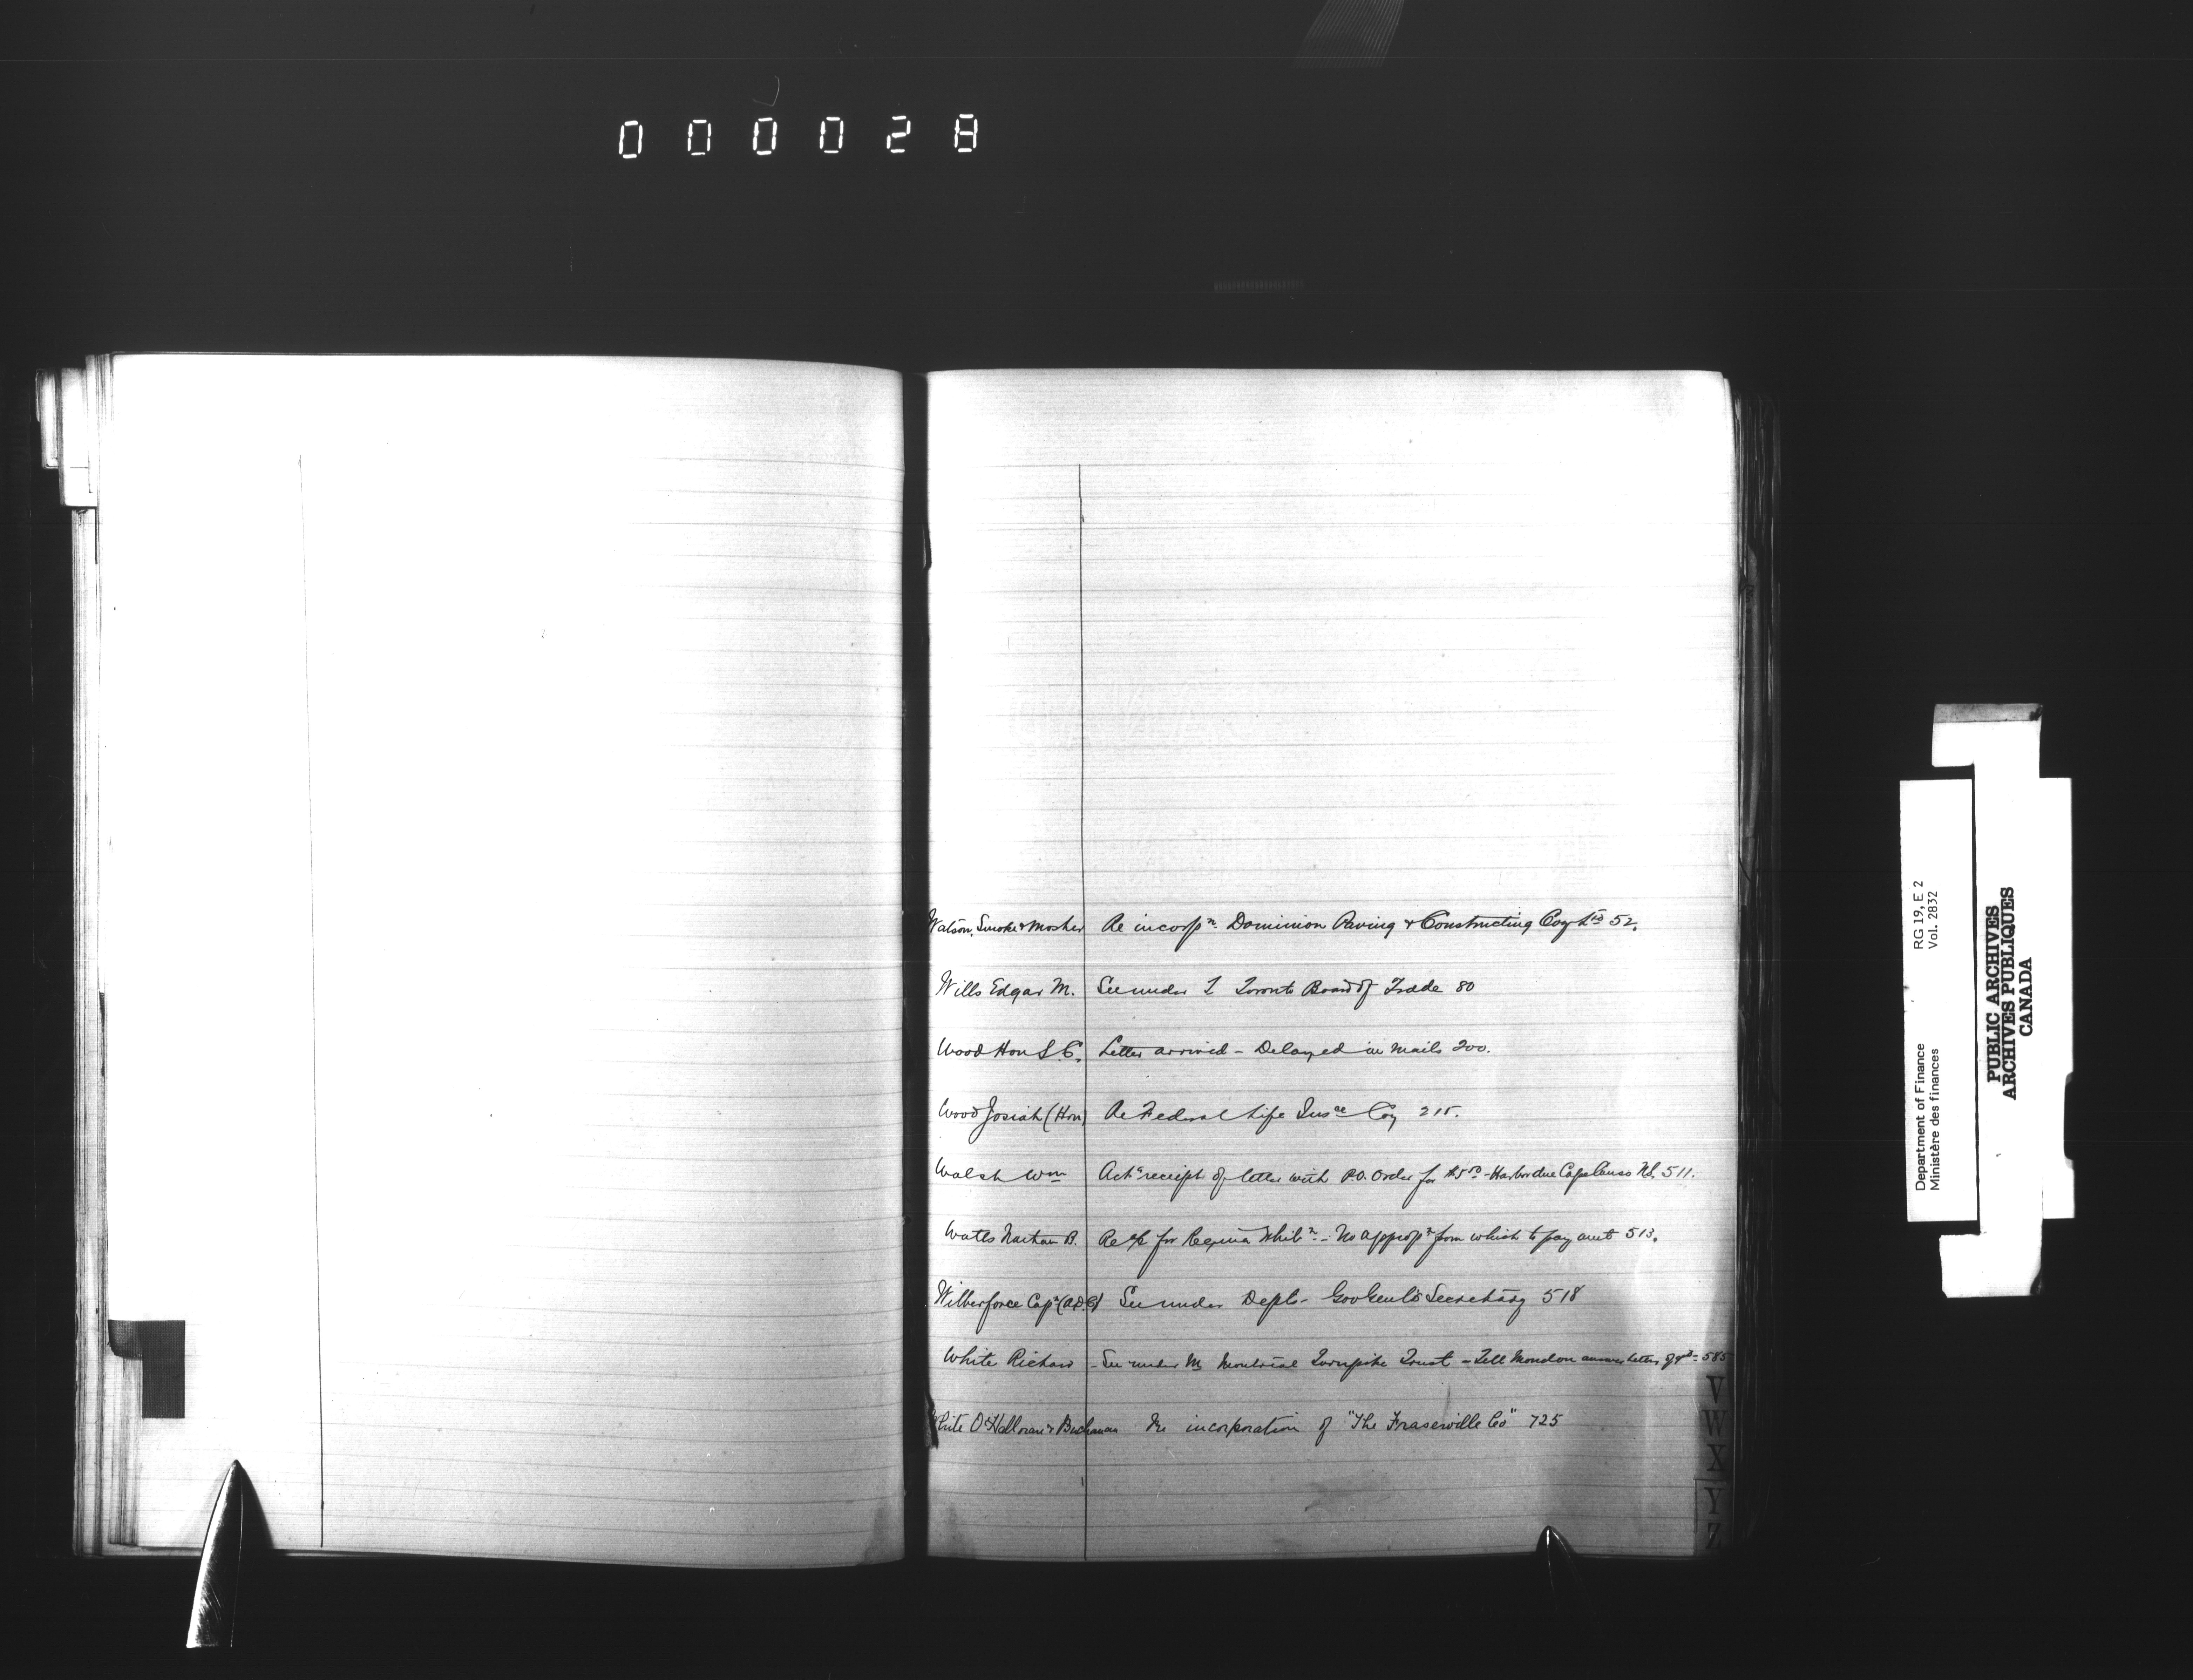 000028
Watson, Smoke & Mosher Re incorpn. Dominion Paving & Constructing Coy Ltd 52.
Wills Edgar M. See under T Toronto Board of Trade 80
Wood Hon S.C. Letter arrived - Delayed in mails 200.
Wood Josiah (Hon) Re Federal Life Insce Coy 215.
Walsh Wm Ackg receipt of letter with P.O. Order for $5 - Harbor due Cape Canso N.S. 511.
Watts Nathan B. Re a/c for Regina Exhibn - No appropn from which to pay amt 513.
Wilberforce Capt (A.D.C) See under Depts - Gov Genl's Secretary 518
White Richard - See under M Montreal Turnpike Trust - Tell Mondon answer letter of 585
White O'Halloran & Buchanan Re incorporation of "The Fraserville Co" 725
V
W
X
Y
Z
Department of Finance RG 19, E 2
Ministère des finances Vol. 2832
PUBLIC ARCHIVES
ARCHIVES PUBLIQUES
CANADA